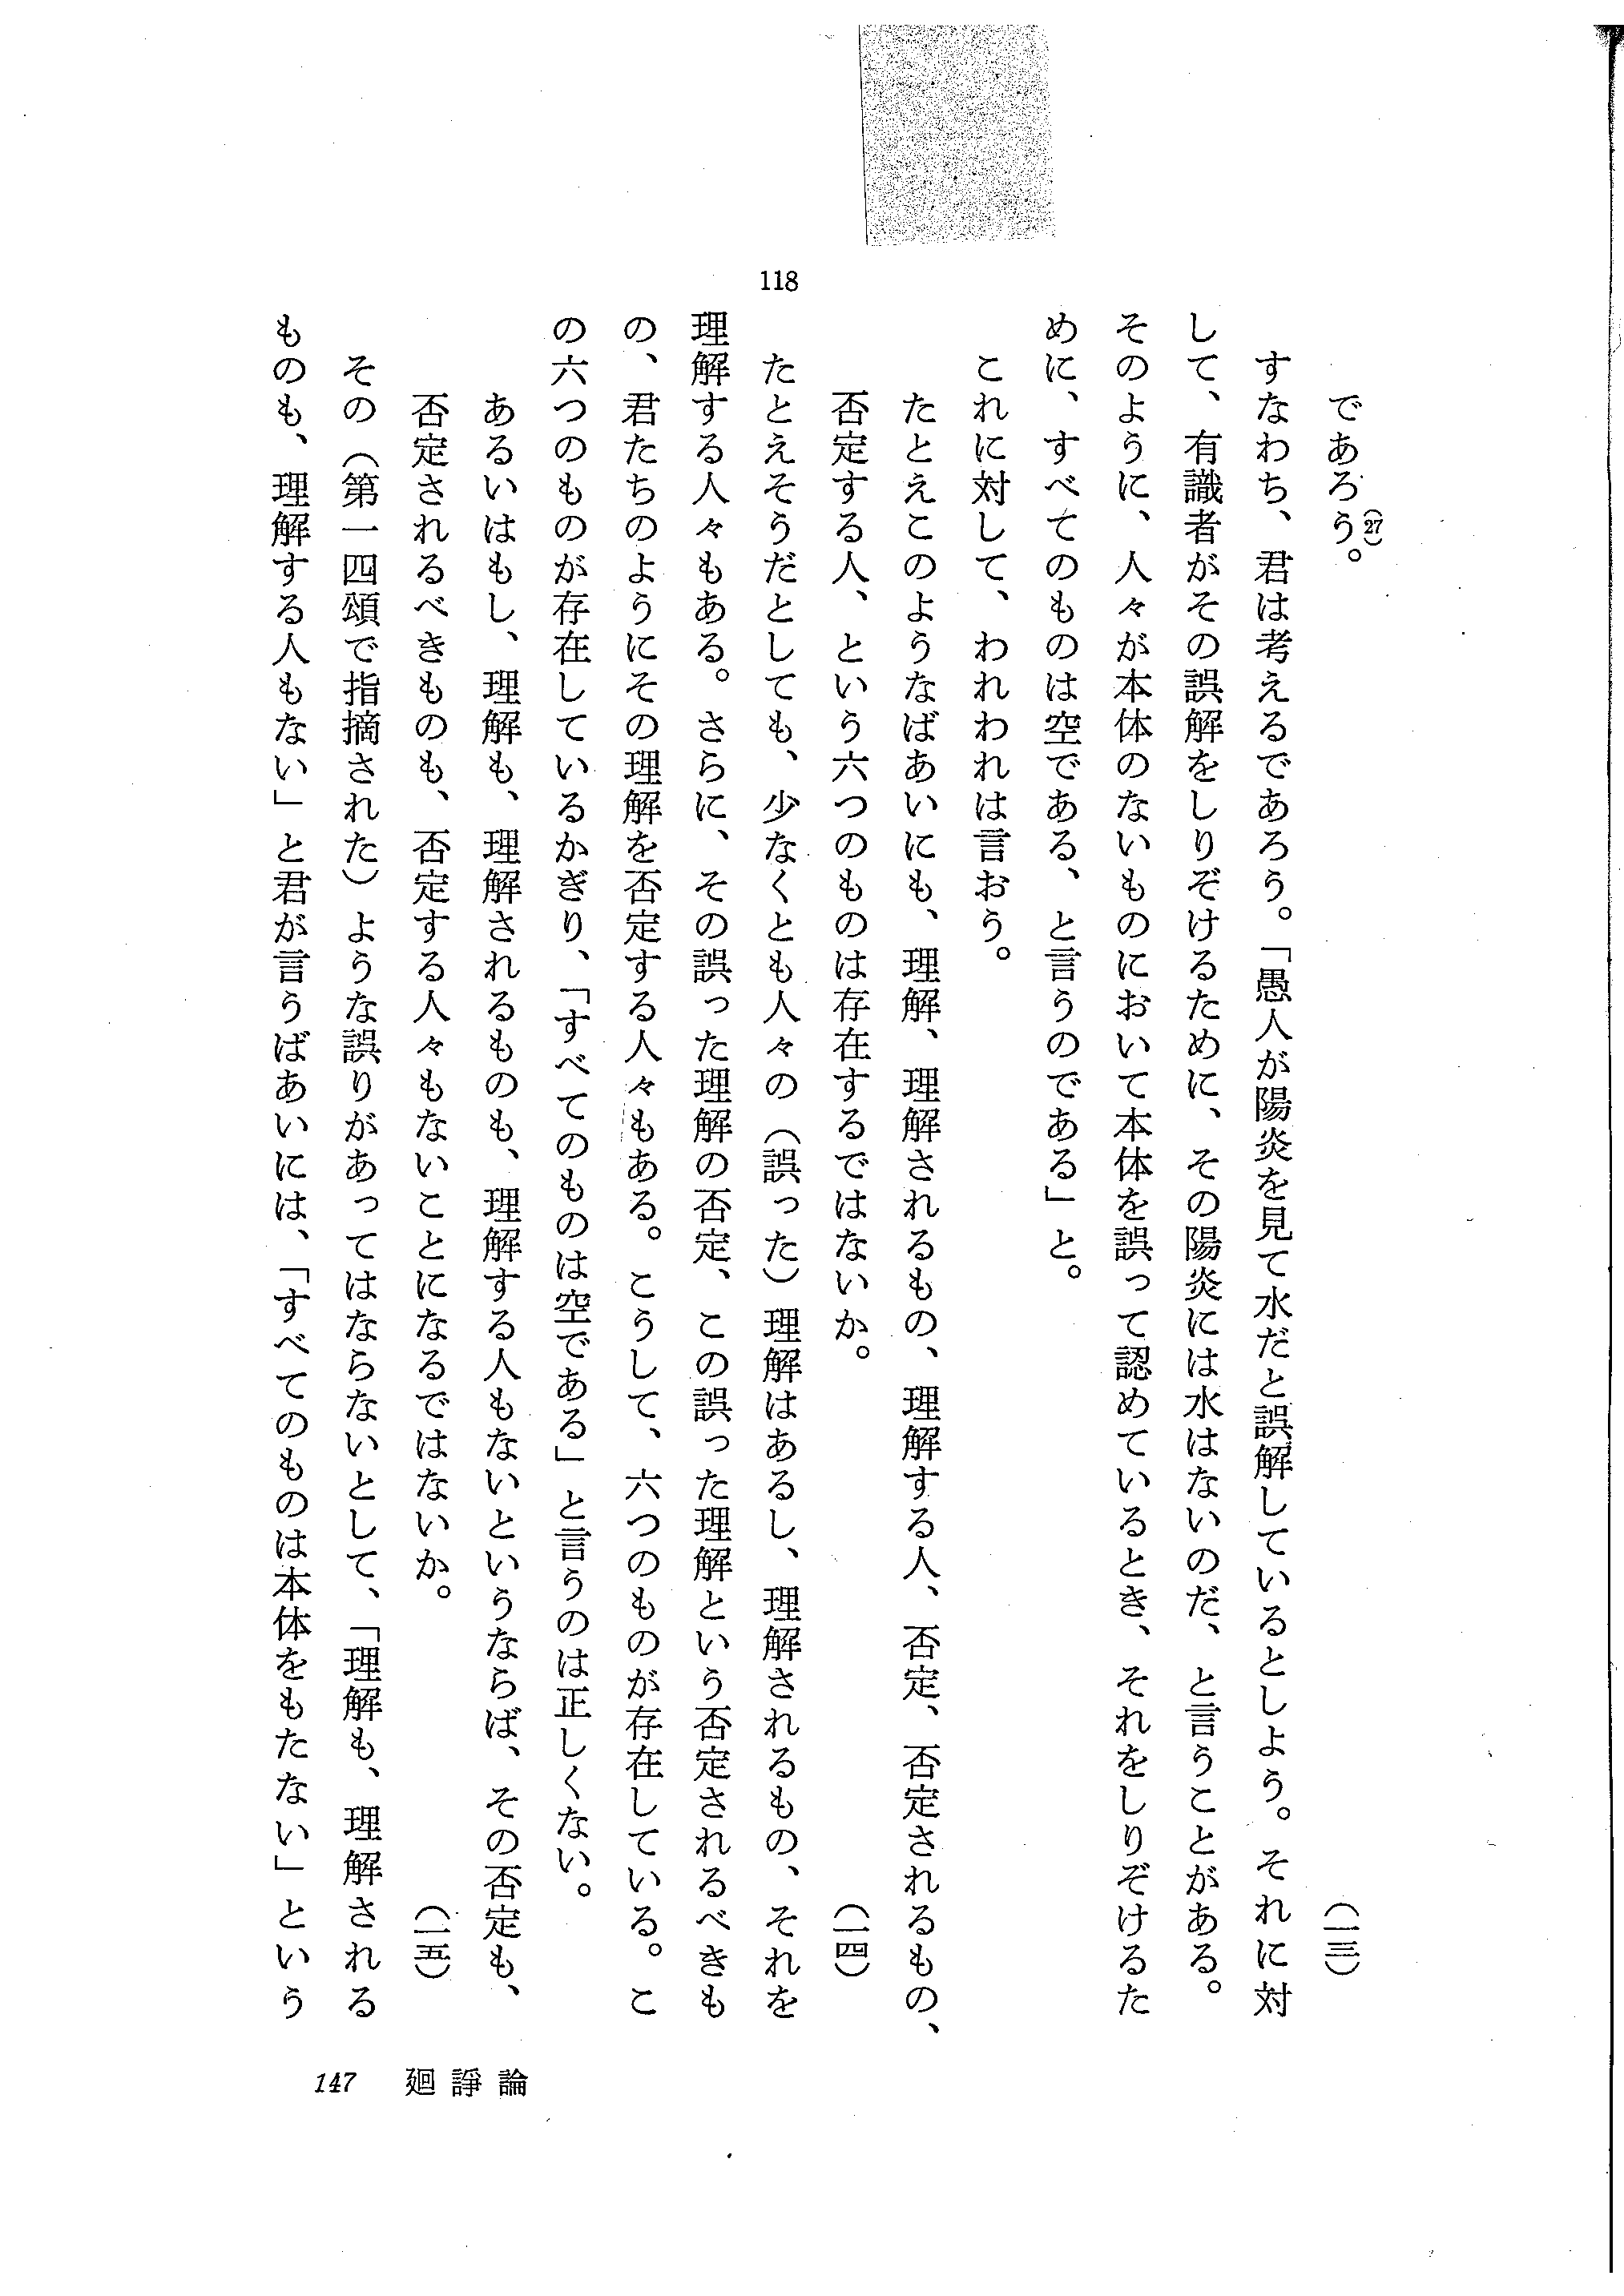 であろう。(27) (一三)
すなわち、君は考えるであろう。「愚人が陽炎を見て水だと誤解しているとしよう。それに対
して、有識者がその誤解をしりぞけるために、その陽炎には水はないのだ、と言うことがある。
そのように、人々が本体のないものにおいて本体を誤って認めているとき、それをしりぞけるた
めに、すべてのものは空である、と言うのである」と。
これに対して、われわれは言おう。
たとえこのようなばあいにも、理解、理解されるもの、理解する人、否定、否定されるもの、
否定する人、という六つのものは存在するではないか。 (一四)
118
たとえそうだとしても、少なくとも人々の(誤った)理解はあるし、理解されるもの、それを
理解する人々もある。さらに、その誤った理解の否定、この誤った理解という否定されるべきも
の、君たちのようにその理解を否定する人々もある。こうして、六つのものが存在している。こ
の六つのものが存在しているかぎり、「すべてのものは空である」と言うのは正しくない。
あるいはもし、理解も、理解されるものも、理解する人もないというならば、その否定も、
否定されるべきものも、否定する人々もないことになるではないか。 (一五)
その(第一四頌で指摘された)ような誤りがあってはならないとして、「理解も、理解される
ものも、理解する人もない」と君が言うばあいには、「すべてのものは本体をもたない」という
147 廻諍論